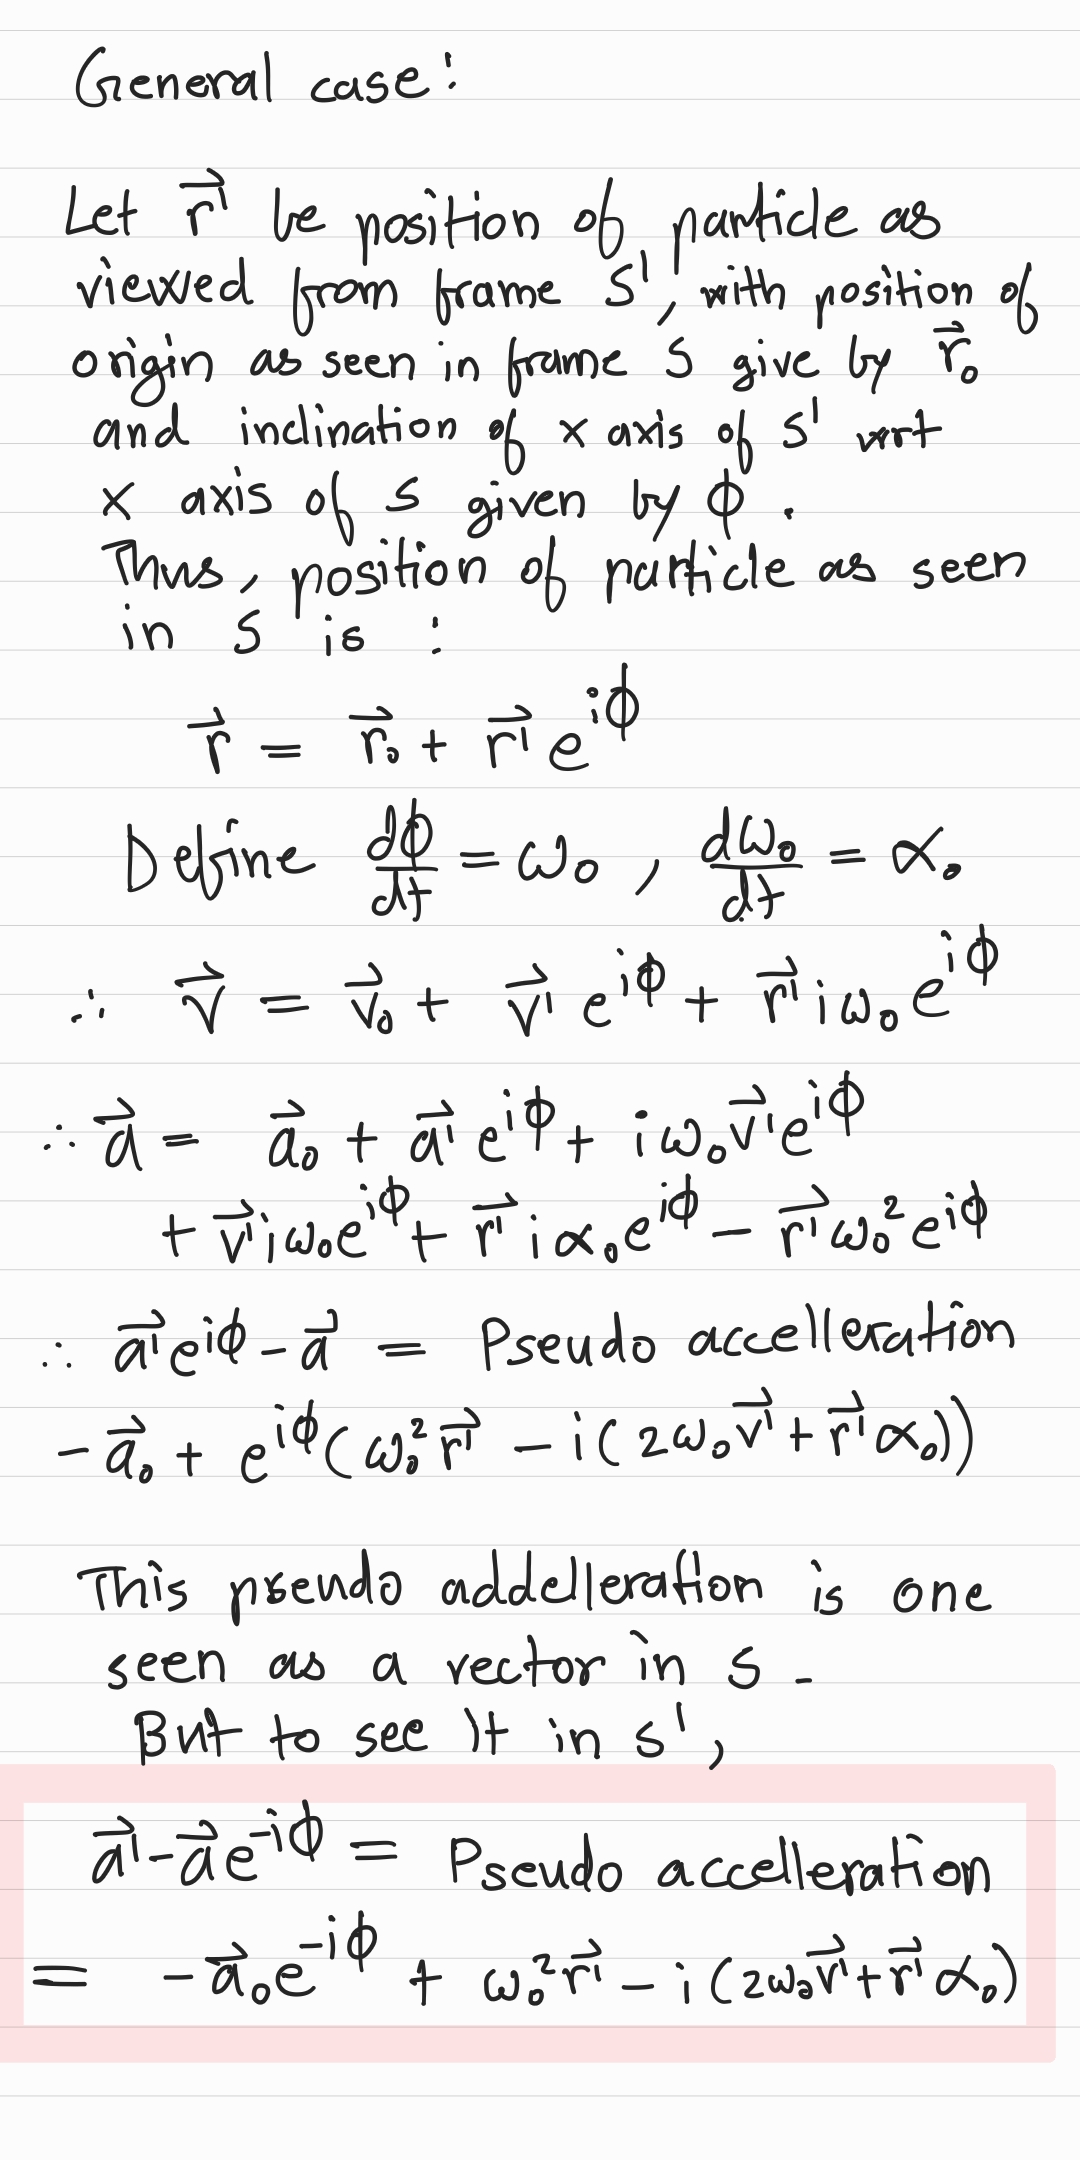 General case:
Let r⃗' be position of particle as
viewed from frame S', with position of
origin as seen in frame S give by r⃗₀
and inclination of x axis of S' wrt
x axis of S given by ϕ.
Thus, position of particle as seen
in S is :
r⃗ = r⃗₀ + r⃗' e^{iϕ}
Define dϕ/dt = ω₀, dω₀/dt = α₀
∴ v⃗ = v⃗₀ + v⃗' e^{iϕ} + r⃗' iω₀ e^{iϕ}
∴ a⃗ = a⃗₀ + a⃗' e^{iϕ} + iω₀v⃗'e^{iϕ}
+ v⃗'iω₀e^{iϕ} + r⃗'iα₀e^{iϕ} - r⃗'ω₀²e^{iϕ}
∴ a⃗'e^{iϕ} - a⃗ = Pseudo accelleration
-a⃗₀ + e^{iϕ}(ω₀²r⃗' - i(2ω₀v⃗' + r⃗'α₀))
This pseudo addelleration is one
seen as a vector in S.
But to see it in S',
a⃗' - a⃗e^{-iϕ} = Pseudo accelleration
= -a⃗₀e^{-iϕ} + ω₀²r⃗' - i(2ω₀v⃗' + r⃗'α₀)